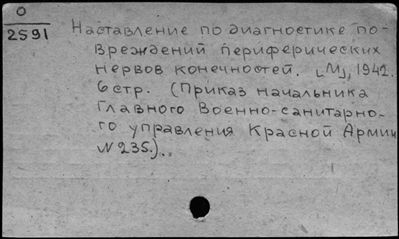 О
2591
Наставление по диагностике по-
вреждений периферических
нервов конечностей. [М], 1942.
6 стр. (Приказ начальника
Главного Военно-санитарно-
го управления Красной Армии
№ 235.)..